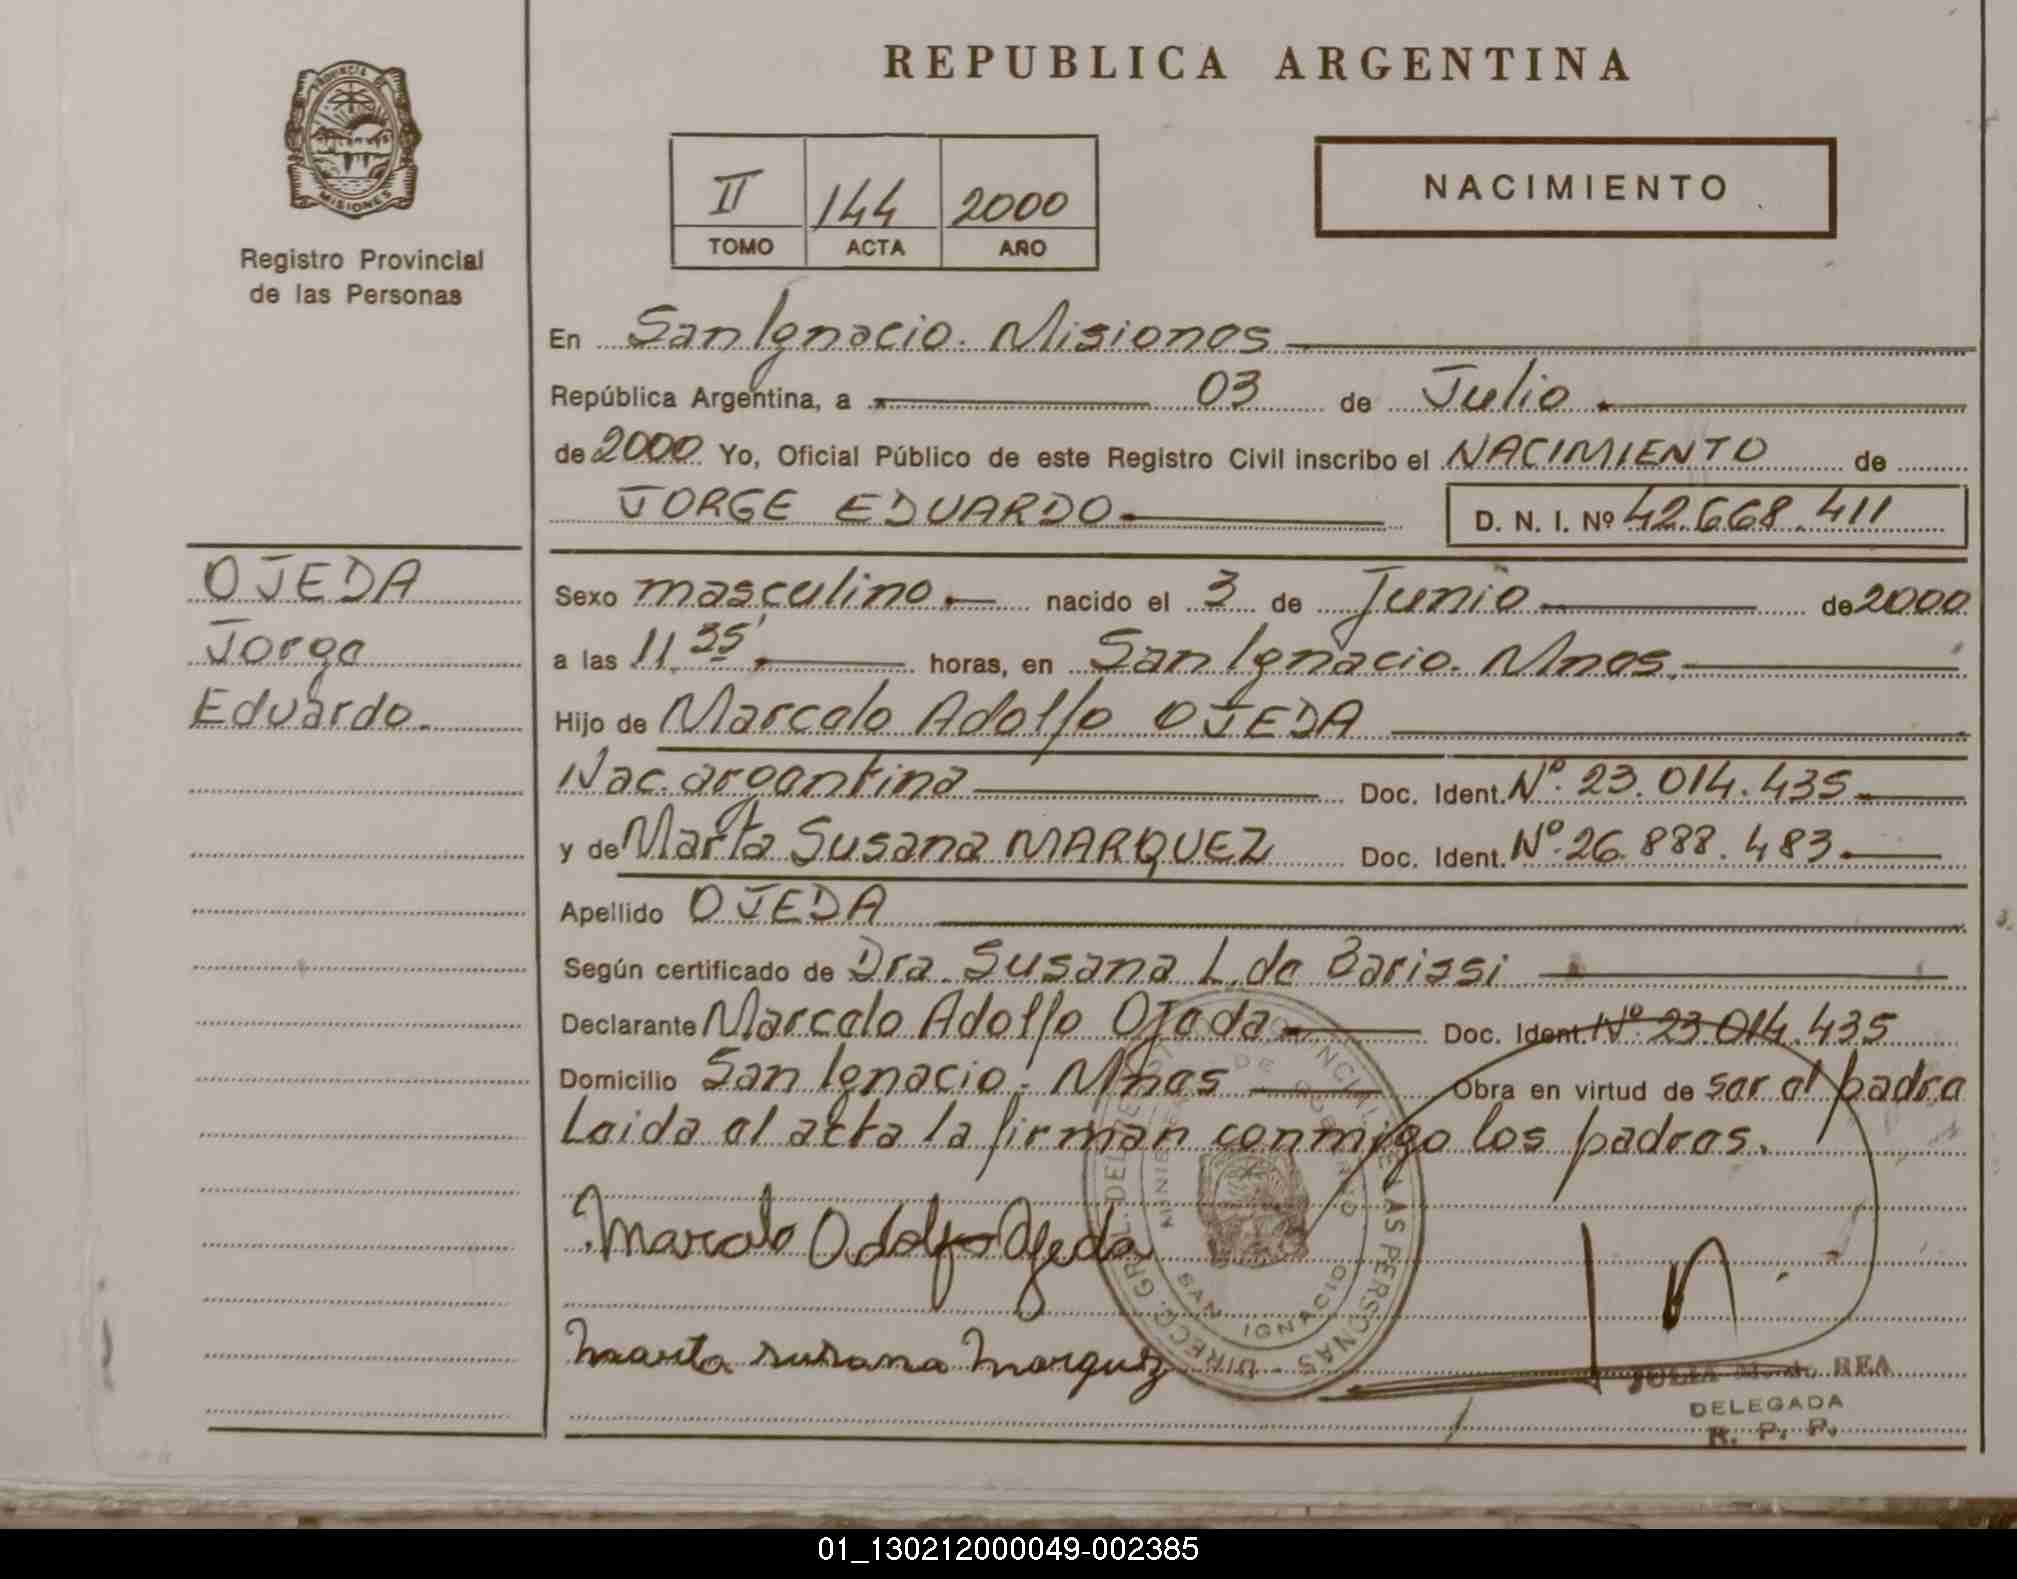 REPUBLICA ARGENTINA
PROVINCIA DE
MISIONES
Registro Provincial
de las Personas
II 144 2000
TOMO ACTA AÑO
NACIMIENTO
En San Ignacio. Misiones
República Argentina, a 03 de Julio
de 2000 Yo, Oficial Público de este Registro Civil inscribo el NACIMIENTO de
JORGE EDUARDO D. N. I. Nº 42.668.411
OJEDA
Jorge
Eduardo.
Sexo masculino nacido el 3 de Junio de 2000
a las 11.35' horas, en San Ignacio. Mnes.
Hijo de Marcelo Adolfo OJEDA
Nac. argentina Doc. Ident. Nº. 23.014.435
y de Marta Susana MARQUEZ Doc. Ident. Nº. 26.888.483
Apellido OJEDA
Según certificado de Dra. Susana L. de Barissi
Declarante Marcelo Adolfo Ojeda Doc. Ident. Nº. 23.014.435
Domicilio San Ignacio. Mnes Obra en virtud de ser el padre
Leida el acta la firman conmigo los padres.
Marcelo Adolfo Ojeda
marta susana marquez
SAN IGNACIO
JULIA REA
DELEGADA
R. P. P.
01_130212000049-002385